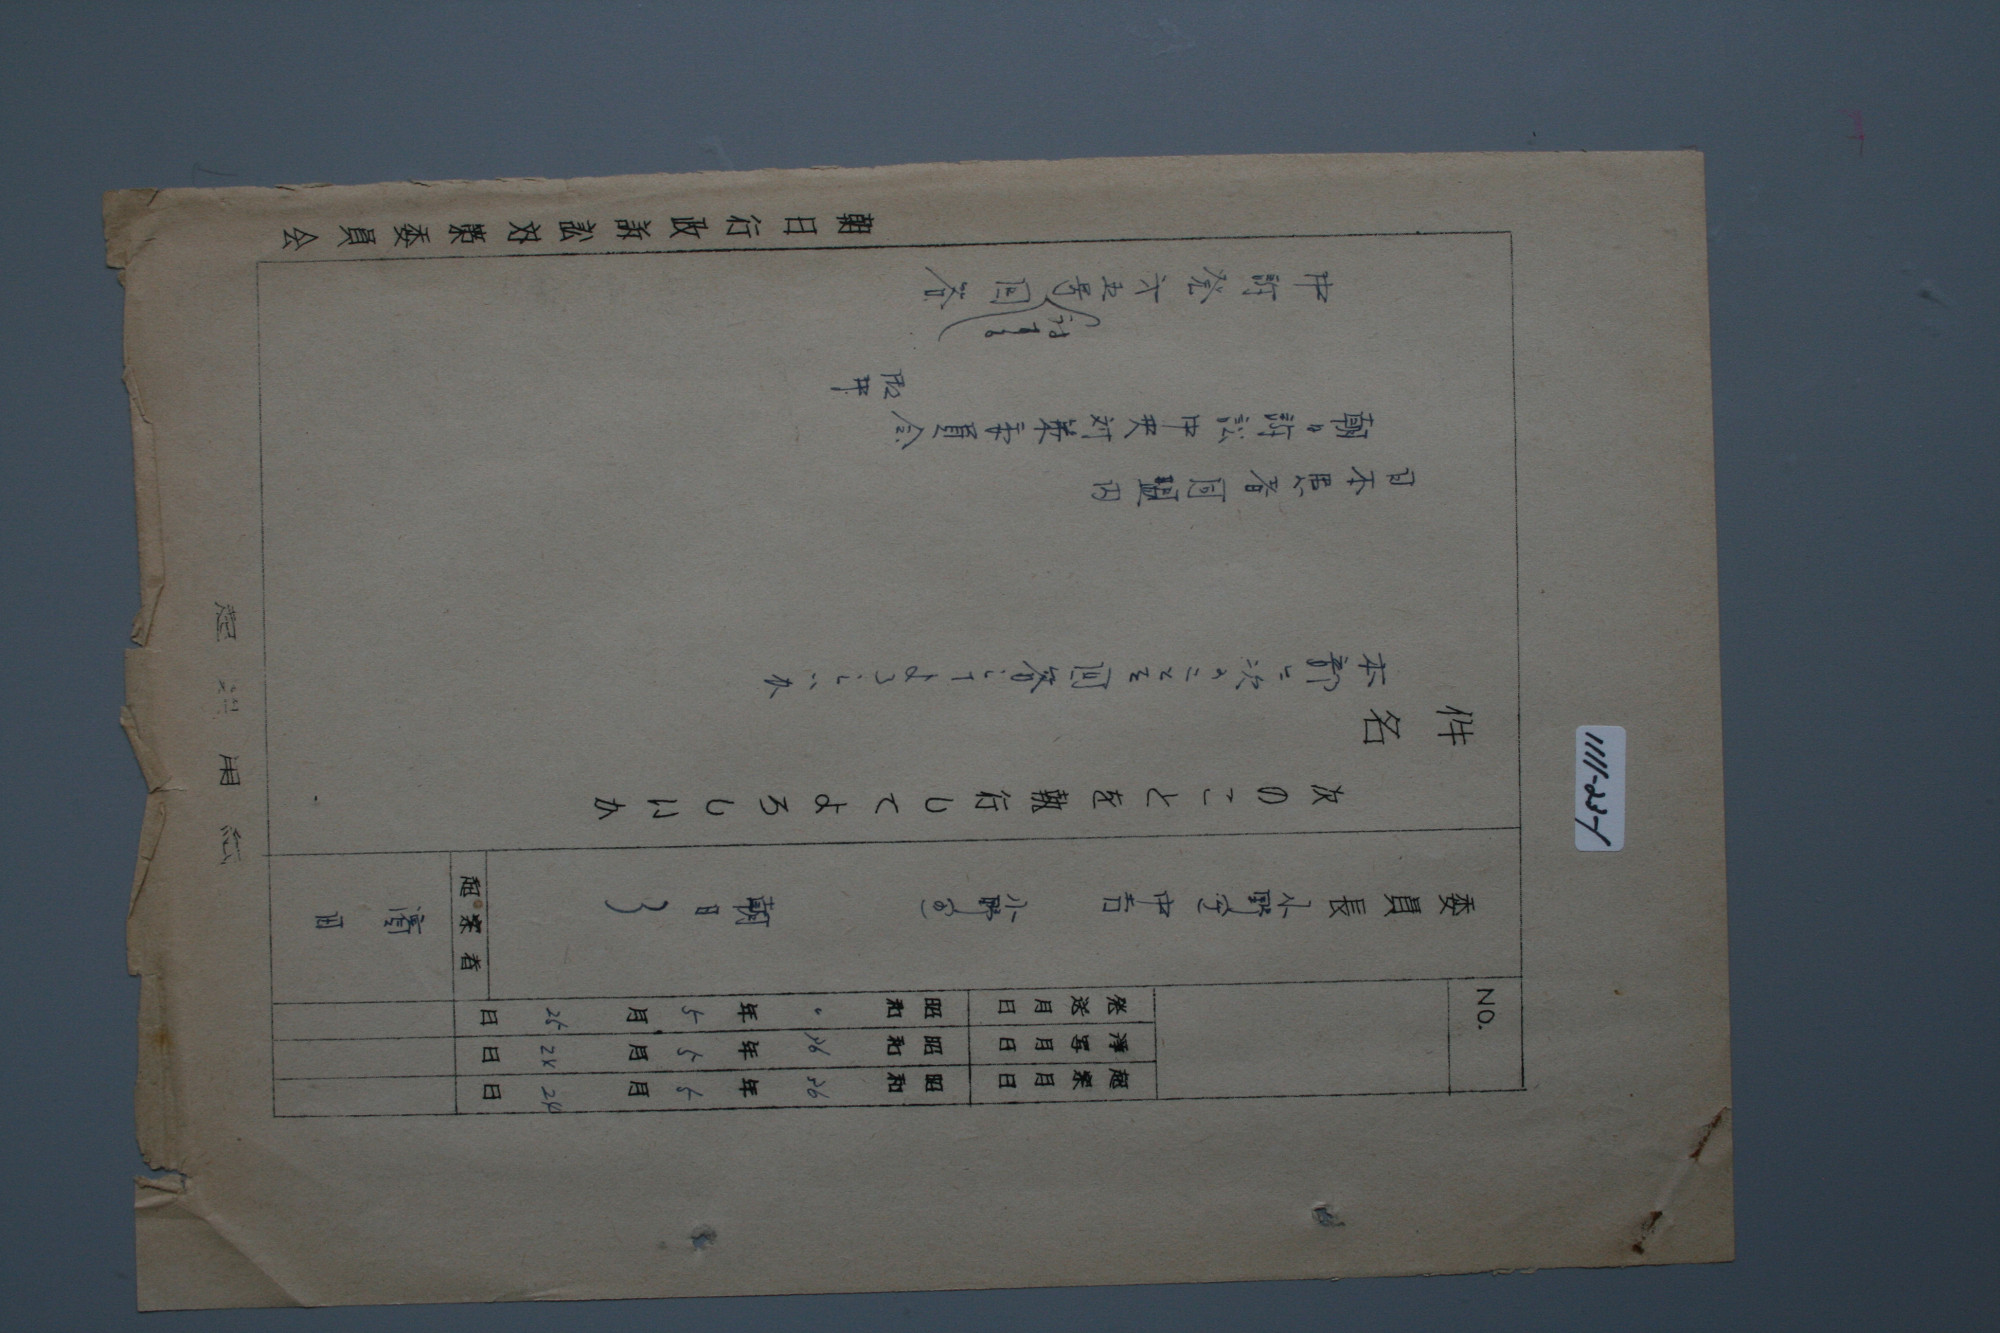 1111-23-1
NO.
起案月日 昭和36年5月24日
淨写月日 昭和36年5月24日
発送月日 昭和 〃年5月25日
委員長 小野 中吉
小野
朝日
起案者
次のことを執行してよろしいか
件名
本部に次のことを回答してよろしいか
日本患者同盟内
朝日訴訟中央対策委員会
中訴発六五号回答
起案用紙
朝日行政訴訟対策委員会